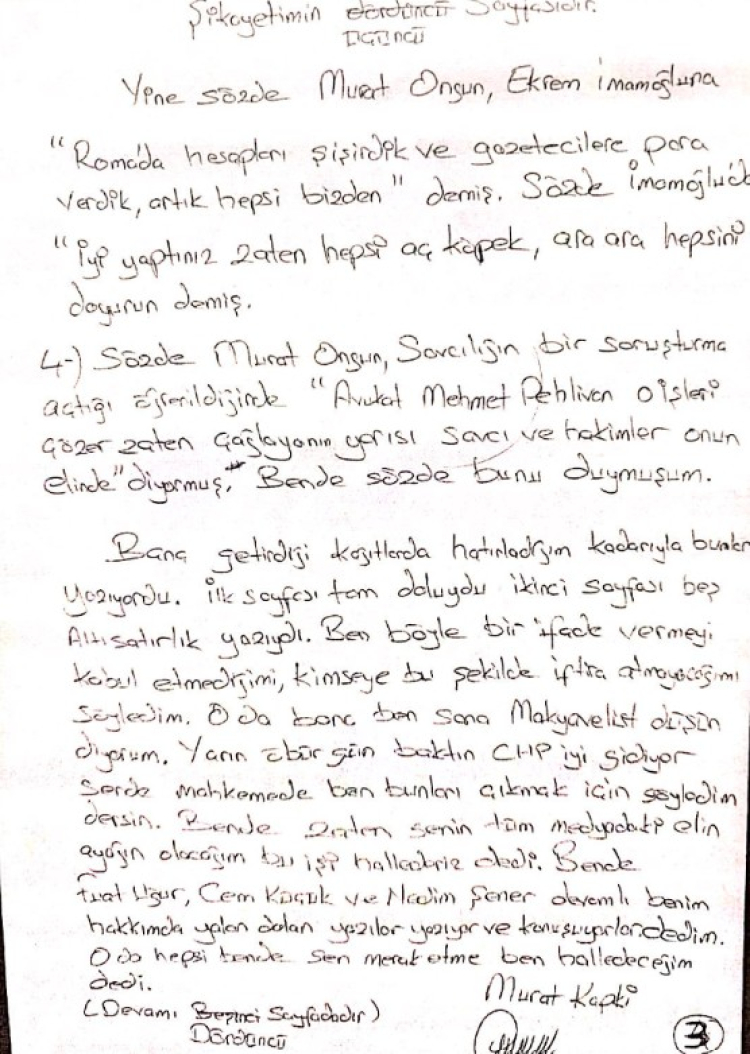 Şikayetimin dördüncü Sayfasıdır.
üçüncü
Yine sözde Murat Ongun, Ekrem İmamoğluna
"Roma'da hesapları şişirdik ve gazetecilere para
verdik, artık hepsi bizden" demiş. Sözde İmamoğlu'da
"iyi yaptınız zaten hepsi aç köpek, ara ara hepsini
doyurun demiş.
4-) Sözde Murat Ongun, Savcılığın bir soruşturma
açtığı öğrenildiğinde "Avukat Mehmet Pehlivan o işleri
çözer zaten Çağlayanın yarısı savcı ve hakimler onun
elinde" diyormuş." Bende sözde bunu duymuşum.
Bana getirdiği kağıtlarda hatırladığım kadarıyla bunlar
yazıyordu. İlk sayfası tam doluydu ikinci sayfası beş
Altı satırlık yazıydı. Ben böyle bir ifade vermeyi
kabul etmediğimi, kimseye bu şekilde iftira atmayacağımı
söyledim. O da bana ben sana Makyavelist düşün
diyorum. Yarın öbür gün baktın CHP iyi gidiyor
Sende mahkemede ben bunları çıkmak için söyledim
dersin. Bende zaten senin tüm medyadaki elin
ayağın olacağım bu işi hallederiz dedi. Bende
Fuat Uğur, Cem Küçük ve Nedim Şener devamlı benim
hakkımda yalan dolan yazılar yazıyor ve konuşuyorlar dedim.
O da hepsi bende sen merak etme ben halledeceğim
dedi.
Murat Kapki
(Devamı Beşinci Sayfadadır)
Dördüncü
3